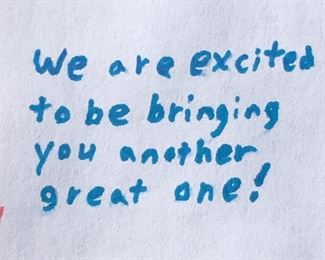 We are excited
to be bringing
you another
great one!